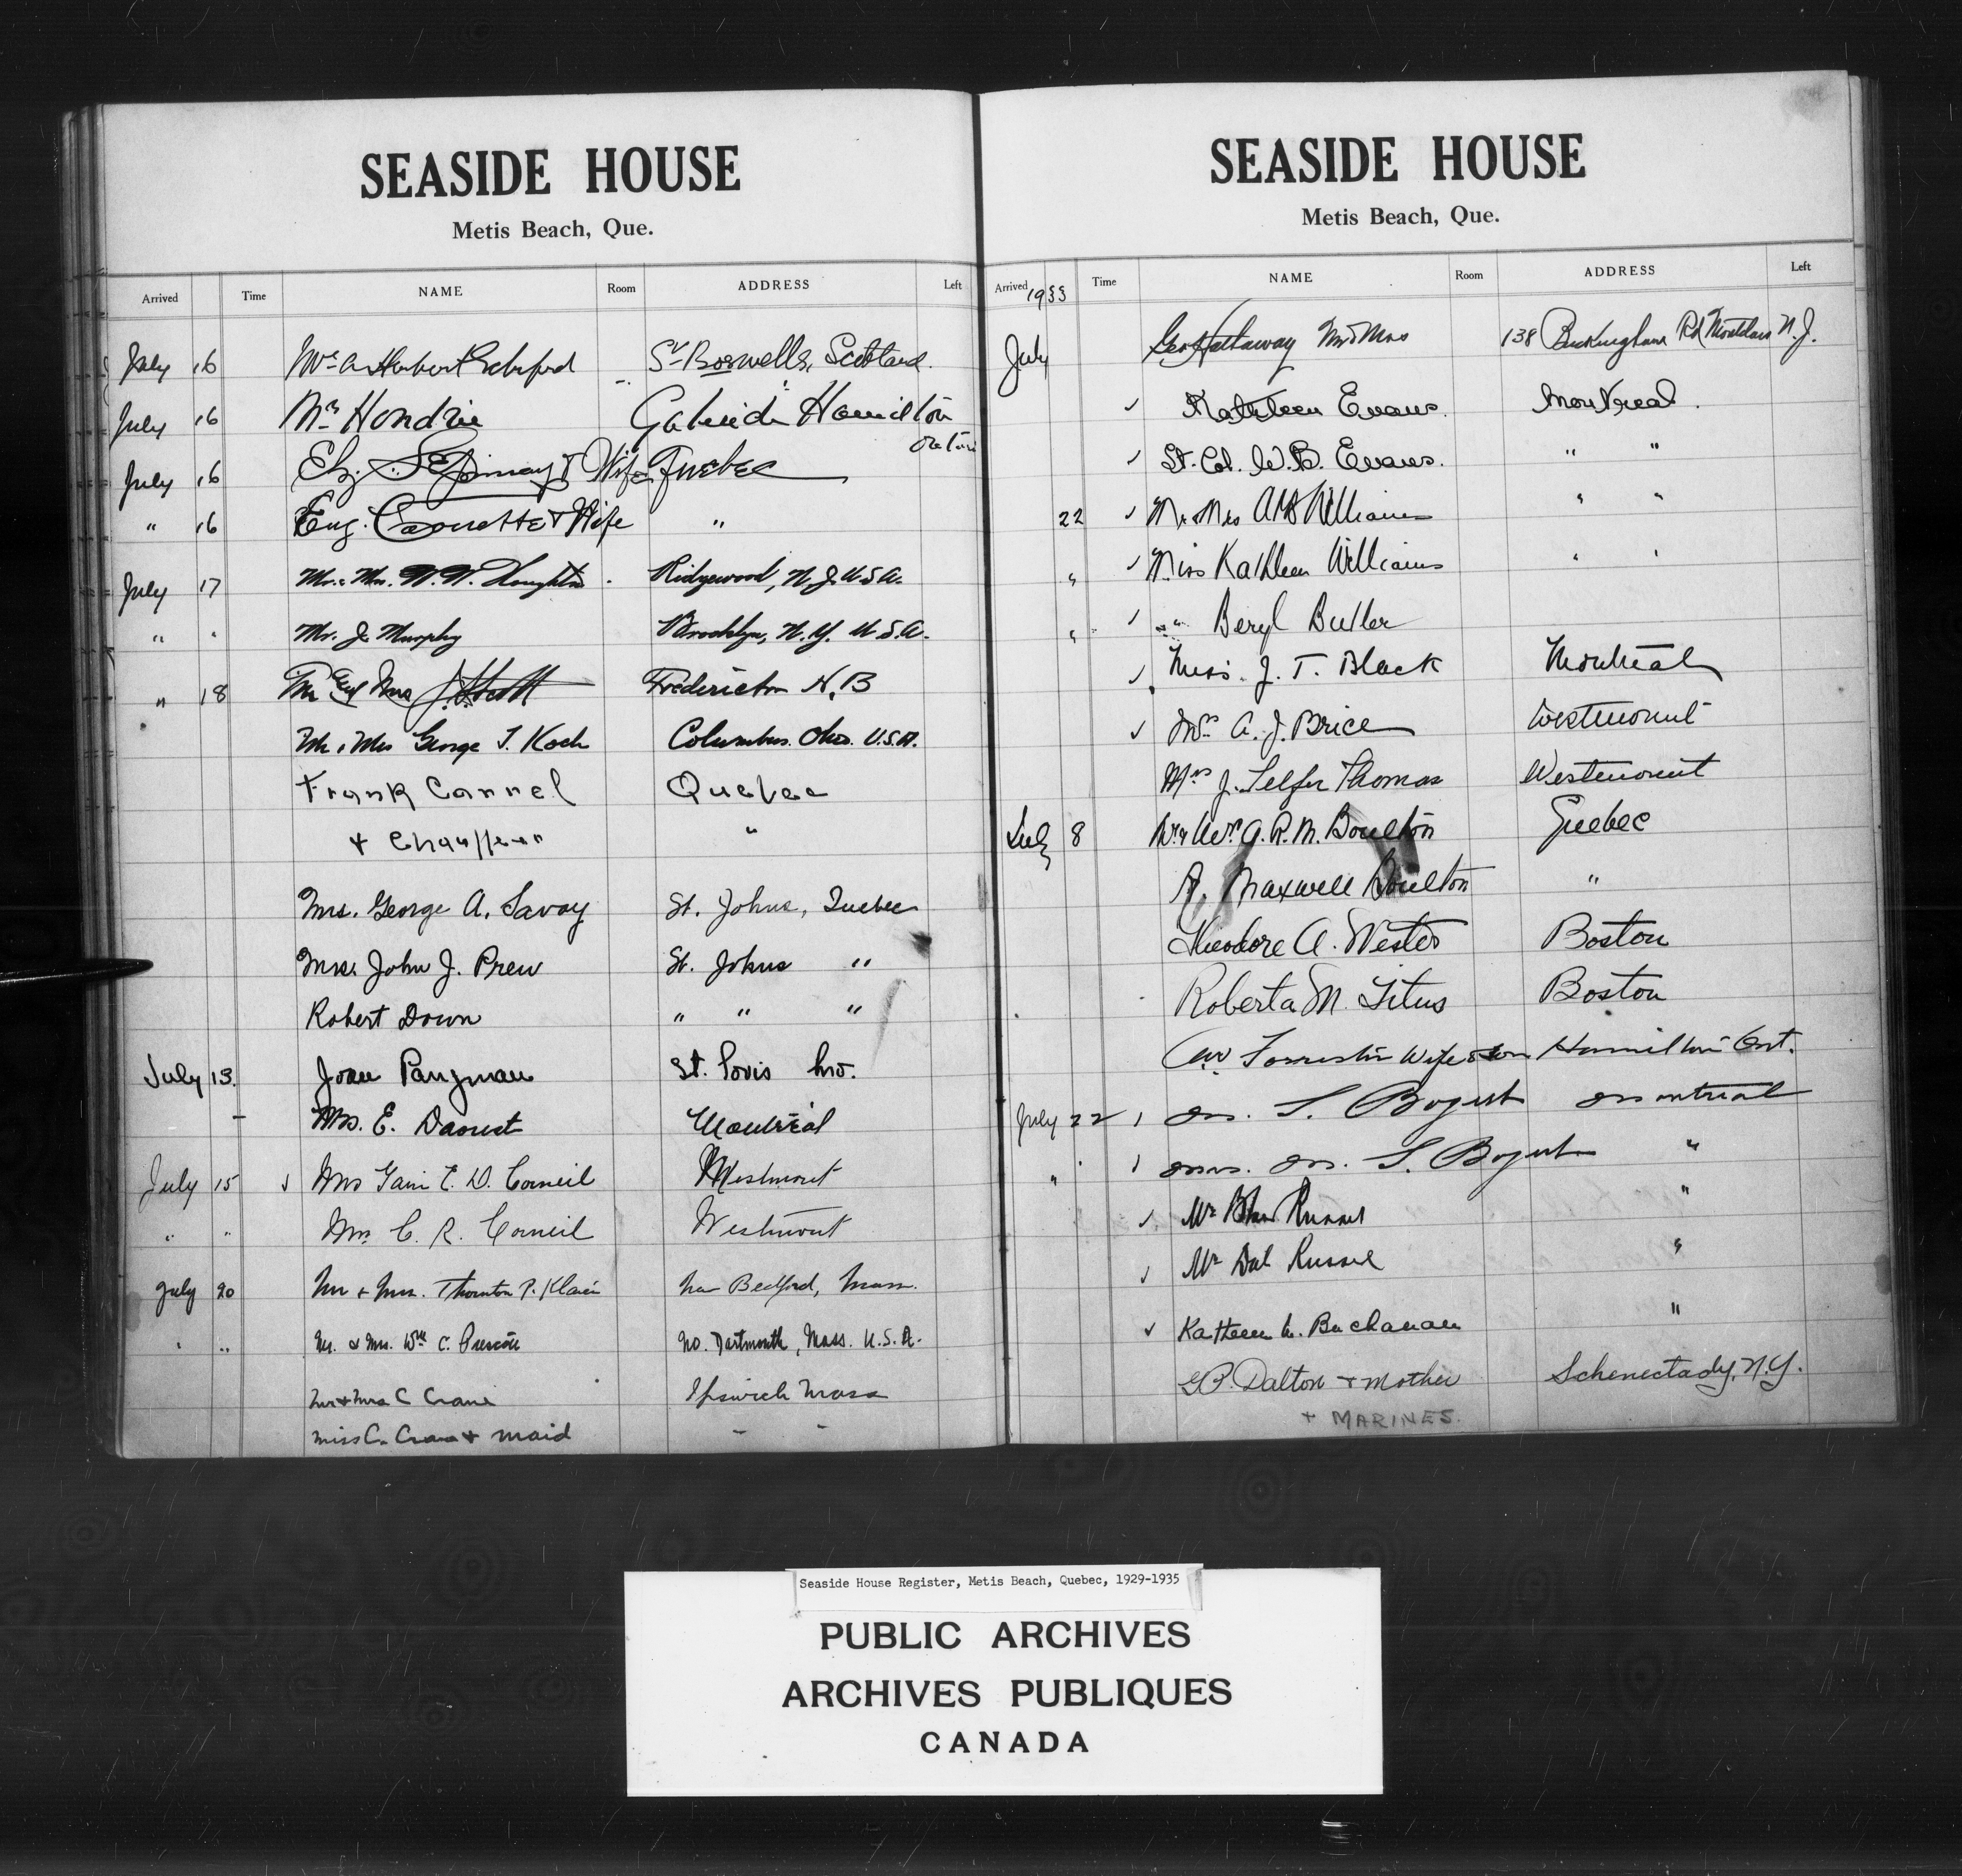 SEASIDE HOUSE
Metis Beach, Que.
Arrived Time NAME Room ADDRESS Left
July 16 Mrs A Herbert St Boswells, Scotland.
July 16 Mrs Hendrie Hamilton
Ontario
July 16 & Wife Quebec
" 16 Eug. & Wife "
July 17 Mr. & Mrs. W. W. Houghton Ridgewood, N. J. U.S.A.
" " Mr. J. Murphy Brooklyn, N. Y. U.S.A.
" 18 Mr and Mrs J. Scott Fredericton N.B
Mr & Mrs George T. Koch Columbus. Ohio. U.S.A.
Frank Cannel Quebec
+ Chauffeur "
Mrs. George A. Savoy St. Johns, Quebec
Mrs. John J. Prew St. Johns "
Robert Down " " "
July 13. Joan Pangman St. Louis Mo.
Mrs. E. Daoust Montréal
July 15 ✓ Mrs E. D. Corneil Westmount
" " Mrs C. R. Corneil Westmount
July 20 Mr + Mrs. Thornton P. Klaren New Bedford, Mass.
" " Mr. & Mrs. Wm C. Prescott No. Dartmouth, Mass. U.S.A.
Mr + Mrs C Crane Ipswich Mass
Miss C. Crane + maid " "
SEASIDE HOUSE
Metis Beach, Que.
Arrived Time NAME Room ADDRESS Left
1933
July Geo Hathaway Mr & Mrs 138 Buckingham Rd Montclair N.J.
✓ Kathleen Evans. Montreal.
✓ Lt. Col. W. B. Evans. " "
22 ✓ Mr & Mrs Williams " "
" ✓ Miss Kathleen Williams " "
" ✓ " Beryl Butler
✓ Miss. J. T. Black Montreal
✓ Mrs A. J. Brice Westmount
Mrs J. Telfer Thomas Westmount
July 8 Mr & Mrs A. R. M. Boulton Quebec
A. Maxwell Boulton "
Theodore A. Wester Boston
Roberta M. Titus Boston
Forrester Wife & son Hamilton Ont.
July 22 ✓ M. S. Bogert Montreal
" " ✓ Mrs. M. S. Bogert "
✓ Mr Russel "
✓ Mr Dal Russel "
✓ Kathleen M. Buchanan "
G P. Dalton + Mother Schenectady, N.Y.
+ MARINES.
Seaside House Register, Metis Beach, Quebec, 1929-1935
PUBLIC ARCHIVES
ARCHIVES PUBLIQUES
CANADA